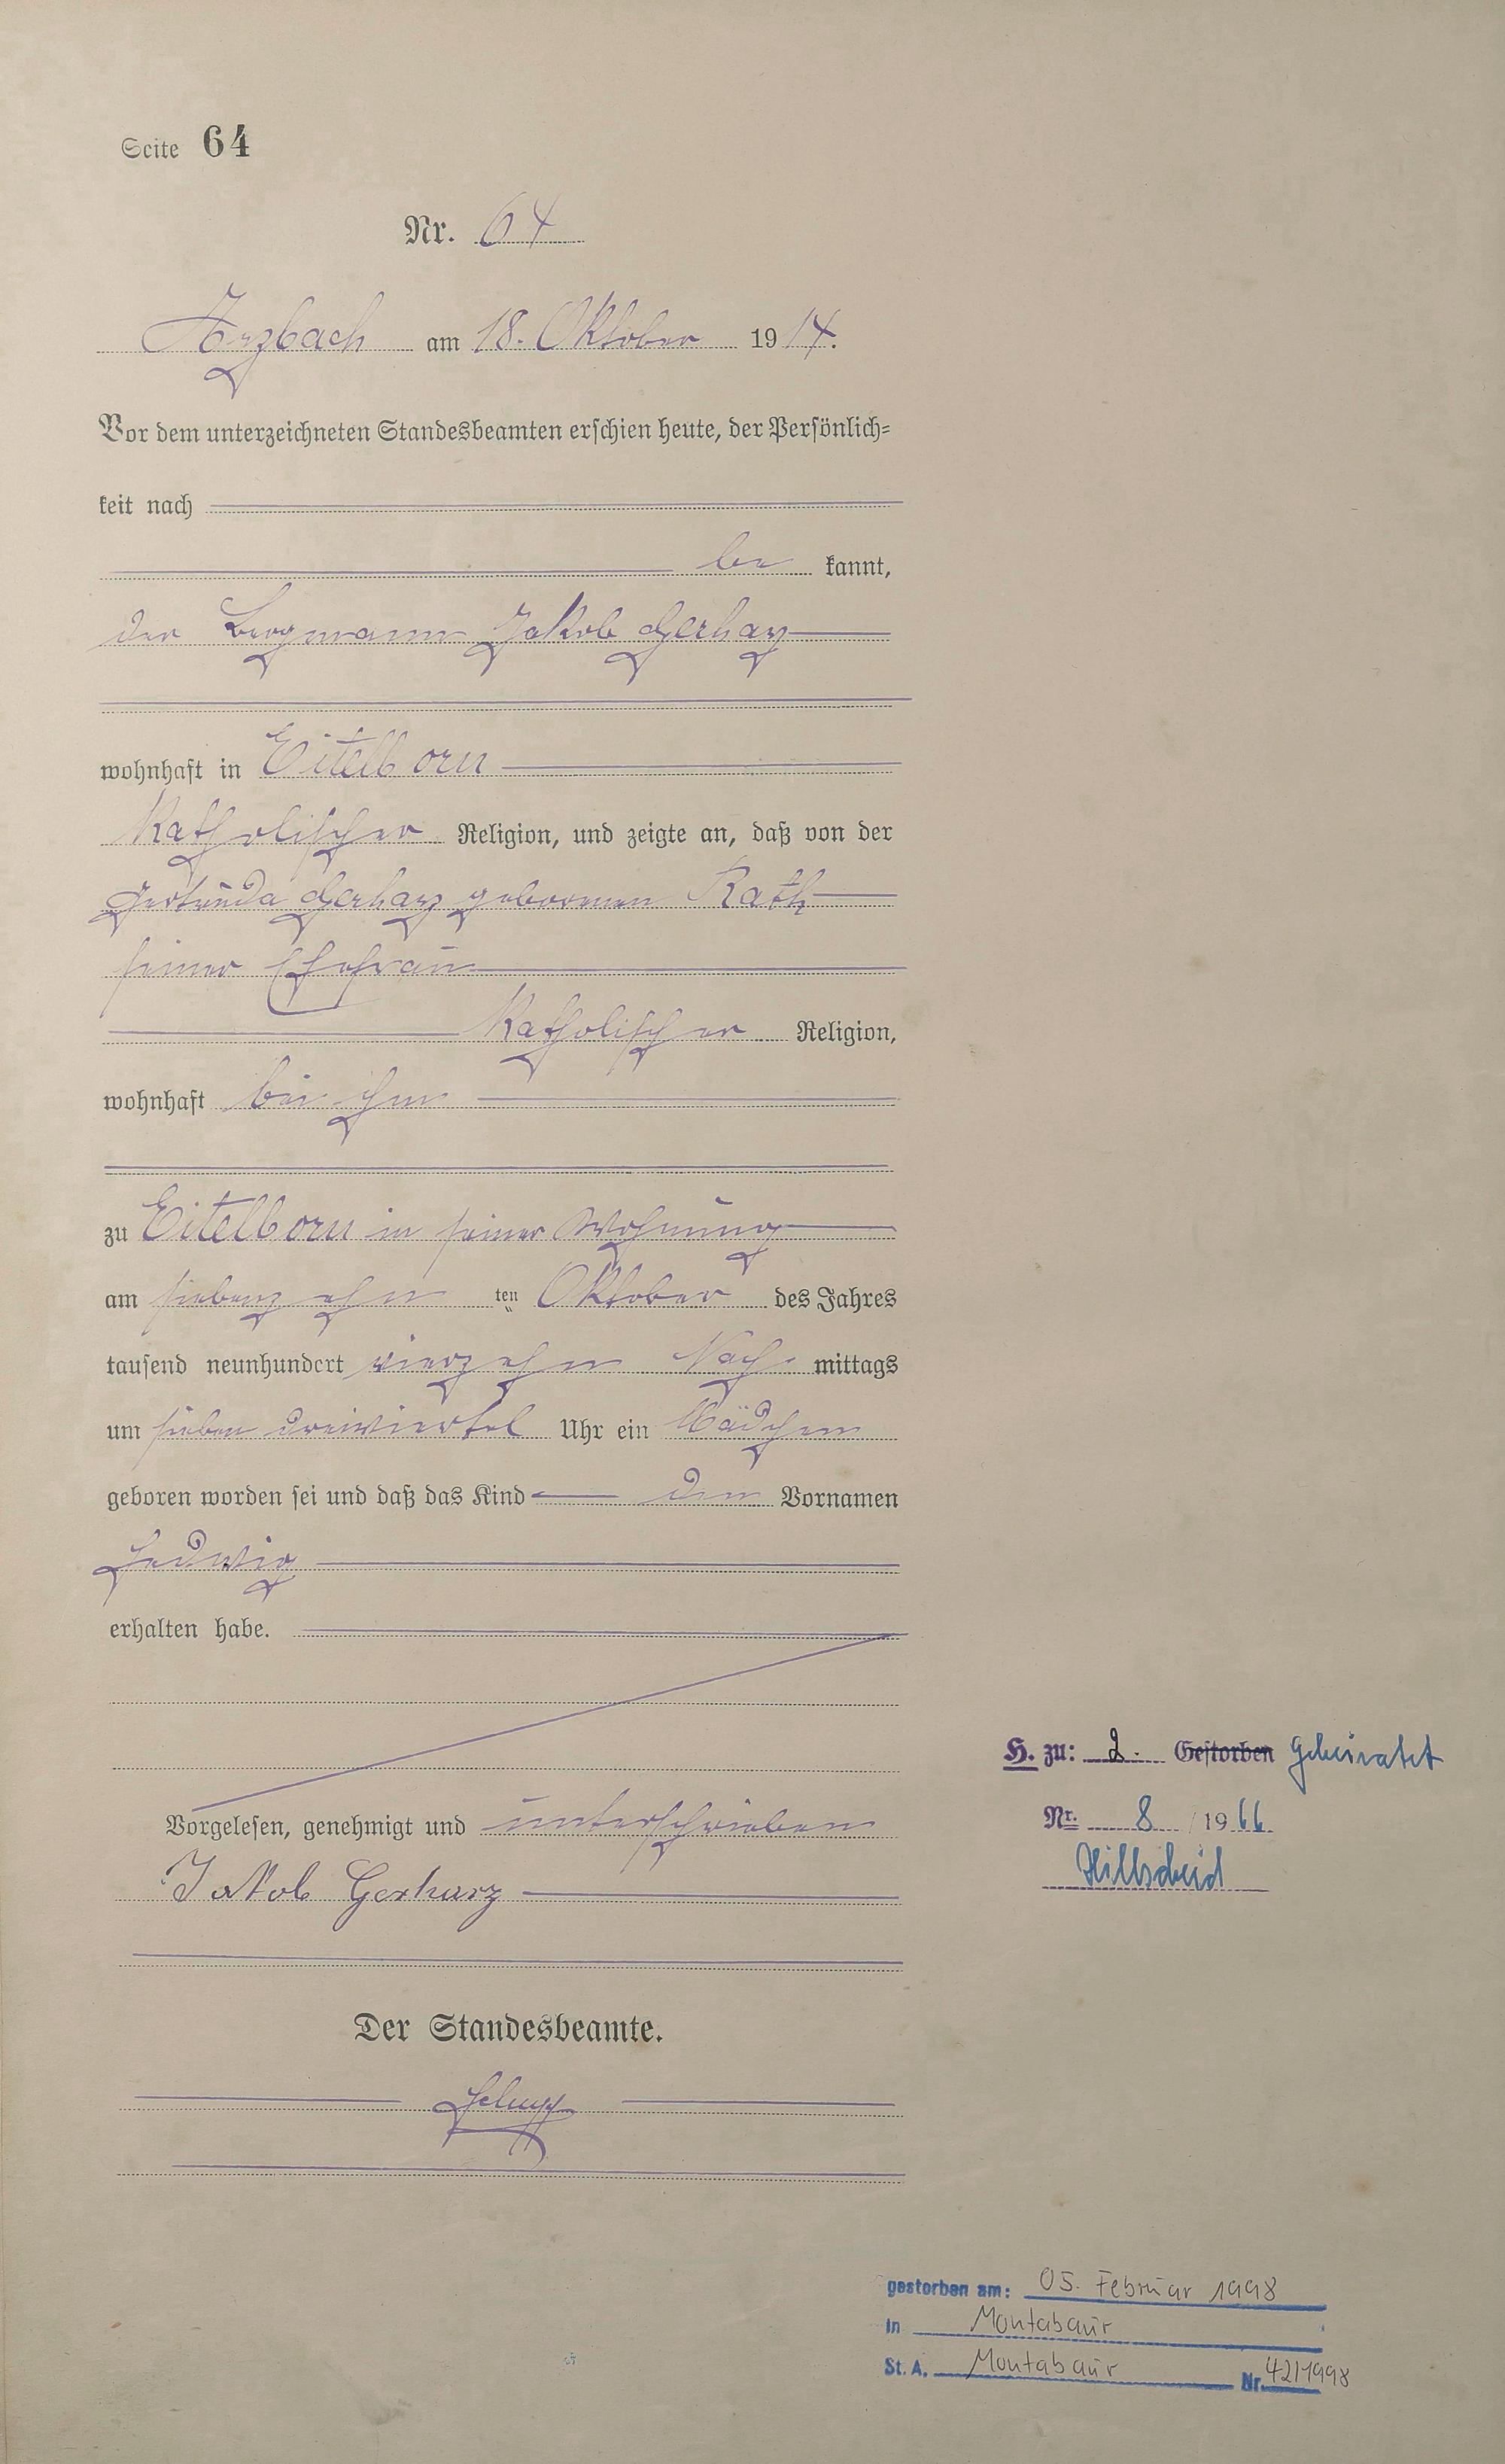 Seite 64
Nr. 64
Arzbach am 18. Oktober 1914.
Vor dem unterzeichneten Standesbeamten erschien heute, der Persönlich=
keit nach
be kannt,
der Bergmann Jakob Gerharz
wohnhaft in Eitelborn
Katholischer Religion, und zeigte an, daß von der
Gertruda Gerharz geborenen Rath
seiner Ehefrau
Katholischer Religion,
wohnhaft bei ihm
zu Eitelborn in seiner Wohnung
am siebenzehn ten Oktober des Jahres
tausend neunhundert vierzehn Nach mittags
um sieben dreiviertel Uhr ein Mädchen
geboren worden sei und daß das Kind den Vornamen
Hedwig
erhalten habe.
Vorgelesen, genehmigt und unterschrieben
Jakob Gerharz
Der Standesbeamte.
H. zu: 2. Gestorben Geheiratet
Nr. 8 / 1966
Hillscheid
gestorben am: 05. Februar 1998
in Montabaur
St. A. Montabaur Nr. 42/1998